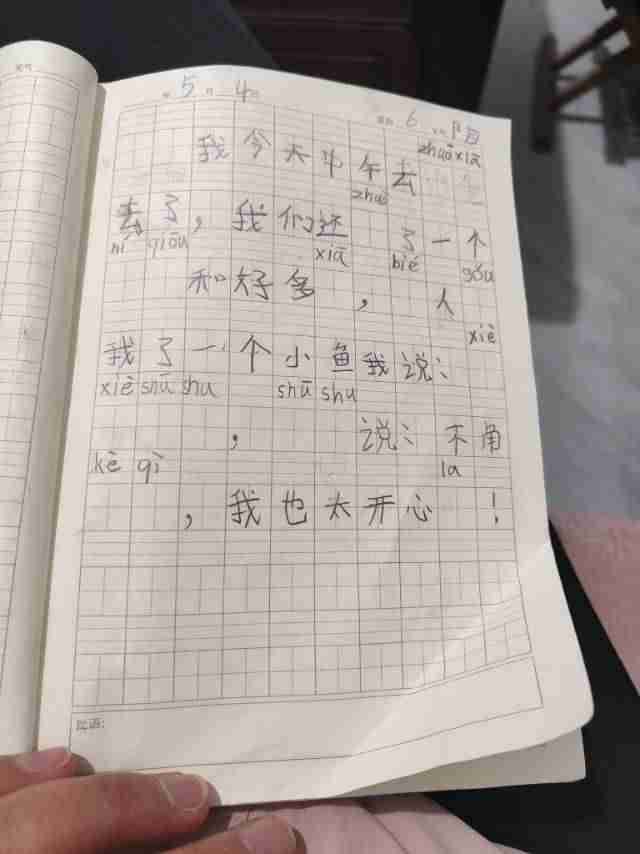 5月 4日
zhuō xiā
我今天中午去
zhuō
去了，我们还 了一个
ní qiōu xiā bié gǒu
和好多 ， 人
xiè
我了一个小鱼我说：
xiè shū shu shū shu
， 说：不角
kè qì la
，我也太开心 ！
批语：